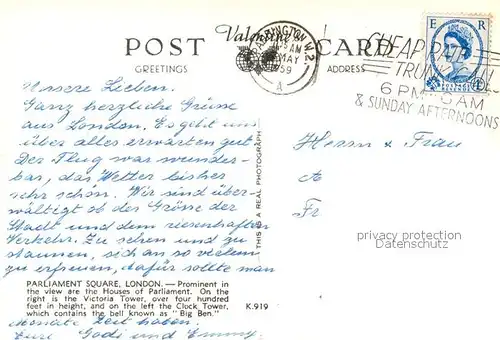 POST Valentine's CARD
GREETINGS ADDRESS
PADDINGTON W.2
AM
MAY
1959
A
CHEAP RATE
TRUNK CALLS
6 PM-6 AM
& SUNDAY AFTERNOONS
E R
POSTAGE REVENUE
Unsere Lieben.
Ganz herzliche Grüsse
aus London. Es geht uns
über alles erwarten gut.
Der Flug war wunder-
bar, das Wetter bisher
sehr schön. Wir sind über-
wältigt ob der Grösse der
Stadt und dem riesenhaften
Verkehr. Zu sehen und zu
staunen, sich an so vielem
zu erfreuen, dafür sollte man
PARLIAMENT SQUARE, LONDON. — Prominent in
the view are the Houses of Parliament. On the
right is the Victoria Tower, over four hundred
feet in height, and on the left the Clock Tower,
which contains the bell known as "Big Ben."
K.919
Monate Zeit haben.
Eure Godi und Emmy
THIS IS A REAL PHOTOGRAPH
Herrn & Frau
A
Fr
privacy protection
Datenschutz